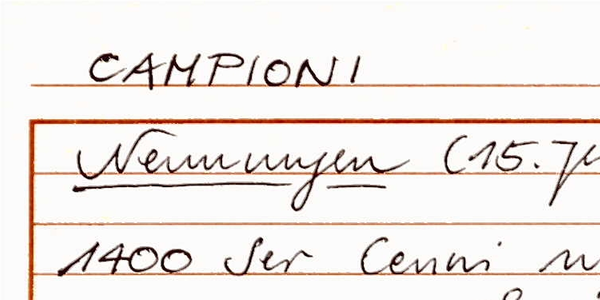 CAMPIONI
Nennungen (15. Ju
1400 Ser Cenni